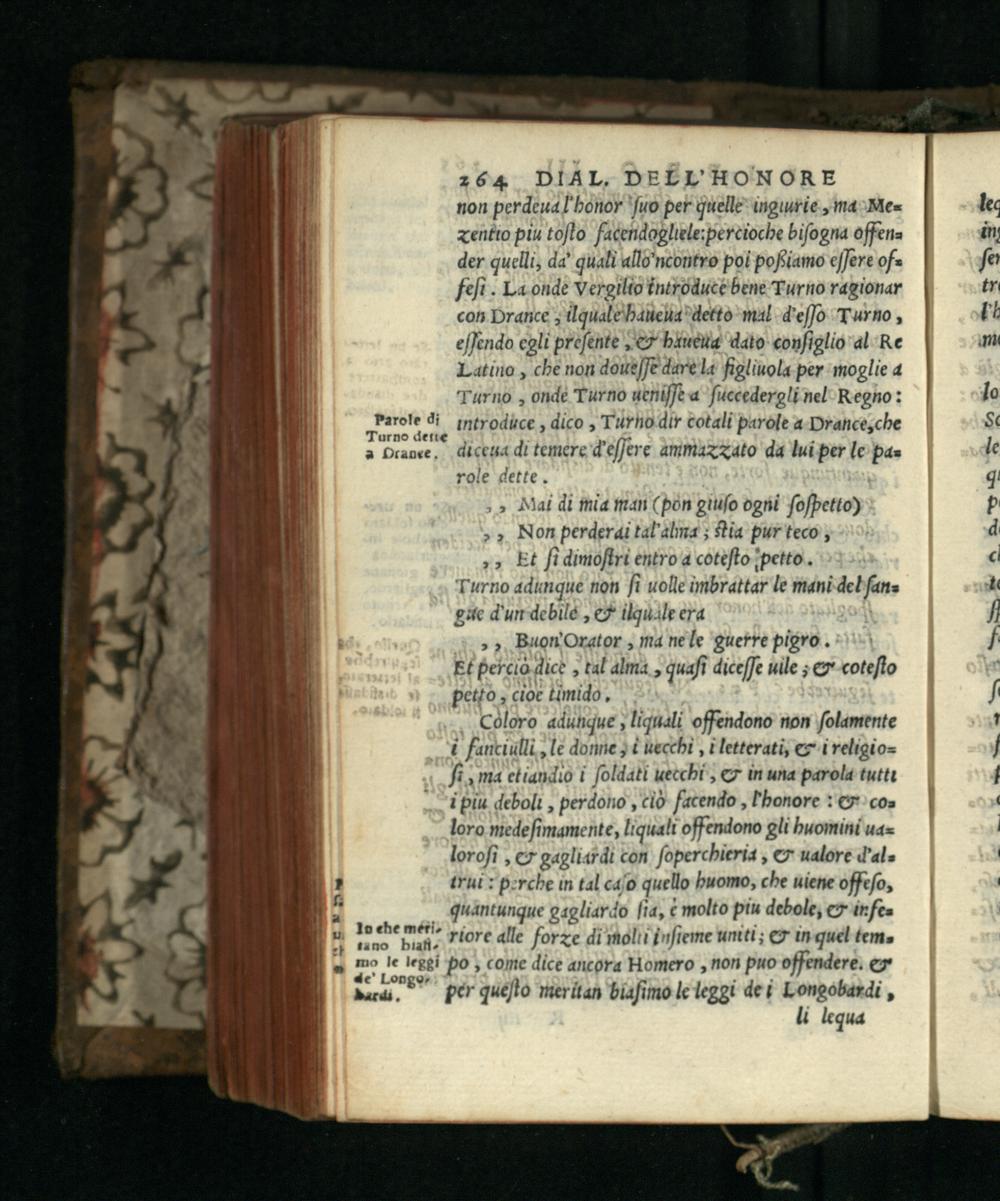 264 DIAL. DELL'HONORE
non perdeua l'honor ſuo per quelle ingiurie, ma Me=
zentio piu toſto facendogliele: percioche biſogna offen=
der quelli, da' quali allo'ncontro poi poßiamo eſſere of=
feſi. La onde Vergilio introduce bene Turno ragionar
con Drance, ilquale haueua detto mal d'eſſo Turno,
eſſendo egli preſente, & haueua dato conſiglio al Re
Latino, che non doueſſe dare la figliuola per moglie a
Turno, onde Turno ueniſſe a ſuccedergli nel Regno:
introduce, dico, Turno dir cotali parole a Drance, che
diceua di temere d'eſſere ammazzato da lui per le pa=
role dette.
Parole di
Turno dette
a Drance.
,, Mai di mia man (pon giuſo ogni ſoſpetto)
,, Non perderai tal'alma; ſtia pur teco,
,, Et ſi dimoſtri entro a coteſto petto.
Turno adunque non ſi uolle imbrattar le mani del ſan=
gue d'un debile, & ilquale era
,, Buon'Orator, ma ne le guerre pigro.
Et perciò dice, tal alma, quaſi diceſſe uile; & coteſto
petto, cioe timido.
Coloro adunque, liquali offendono non ſolamente
i fanciulli, le donne, i uecchi, i letterati, & i religio=
ſi, ma etiandio i ſoldati uecchi, & in una parola tutti
i piu deboli, perdono, ciò facendo, l'honore: & co=
loro medeſimamente, liquali offendono gli huomini ua=
loroſi, & gagliardi con ſoperchieria, & ualore d'al=
trui: perche in tal caſo quello huomo, che uiene offeſo,
quantunque gagliardo ſia, è molto piu debole, & infe=
riore alle forze di molti inſieme uniti; & in quel tem=
po, come dice ancora Homero, non puo offendere. &
per queſto meritan biaſimo le leggi de i Longobardi,
In che meri-
tano biaſi-
mo le leggi
de' Longo-
bardi.
li lequa